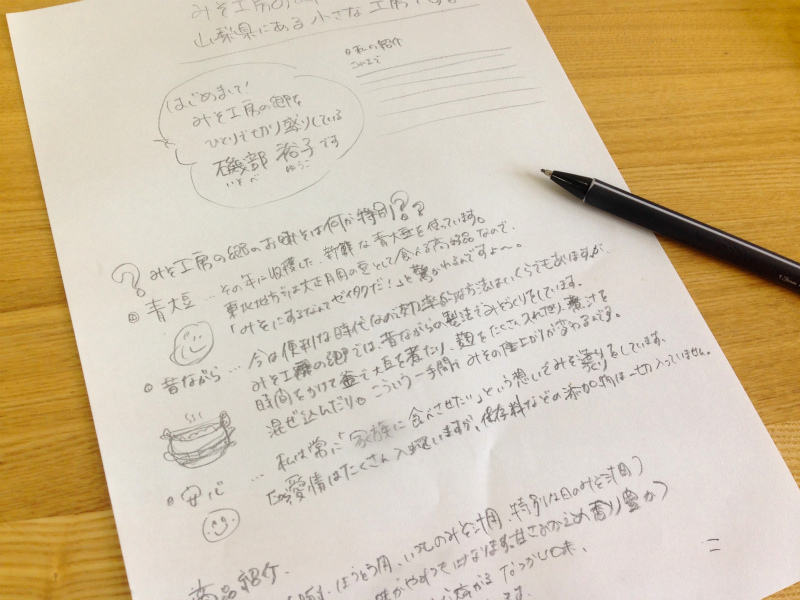 みそ工房の郷
山梨県にある小さな工房です
◎私の紹介
これまで
はじめまして!
みそ工房の郷を
ひとりで切り盛りしている
磯部 裕子です
いそべ ゆうこ
みそ工房の郷のお味そは何が特別??
◎青大豆 … その年に収穫した、新鮮な青大豆を使っています。
東北地方ではお正月用の豆として食べる高級品なので、
「みそにするなんてゼイタクだ!」と驚かれるんですよ〜。
◎昔ながら … 今は便利な時代なので効率的な方法はいくらでもありますが、
みそ工房の郷では、昔ながらの製法でみそづくりをしています。
時間をかけて釜で大豆を煮たり、麹をたくさん入れたり、煮汁を
混ぜ込んだり。こういう一手間で、みその仕上がりが変わるんです。
◎安心 … 私は常に「家族に食べさせたい」という想いでみそ造りをしています。
愛情はたくさん入っていますが、保存料などの添加物は一切入っていません。
商品紹介
ほうとう用、いつものみそ汁用、特別な日のみそ汁用)
香り豊か)
なつかしい味、